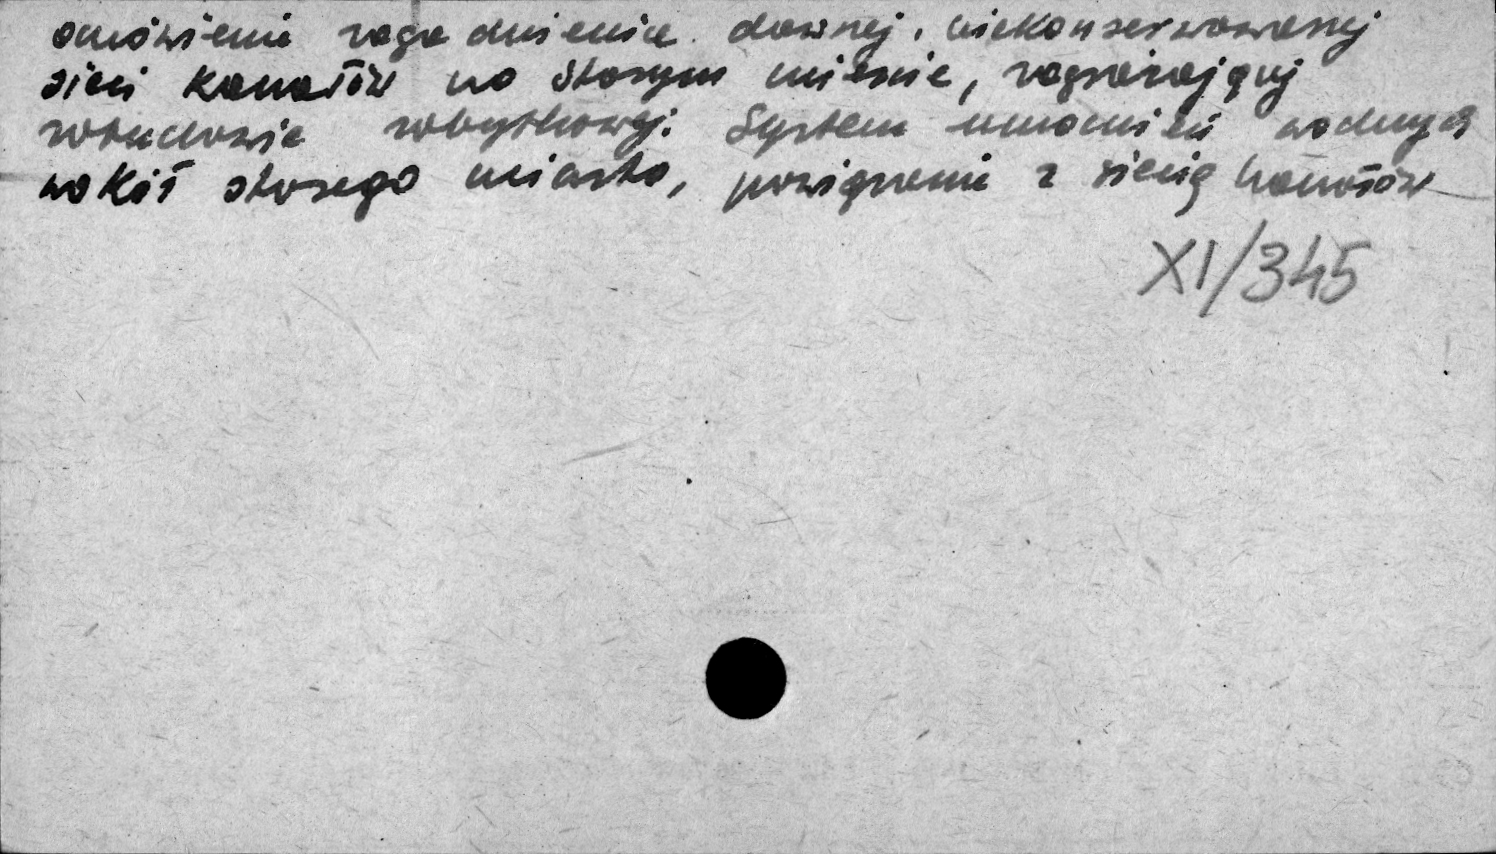 omówienie zagadnienia dawnej, niekonserwowanej
sieci kanałów na starym mieście, zagrażającej
zabudowie zabytkowej. System umocnień wodnych
wokół starego miasta, powiązanie z siecią kanałów
XI/345